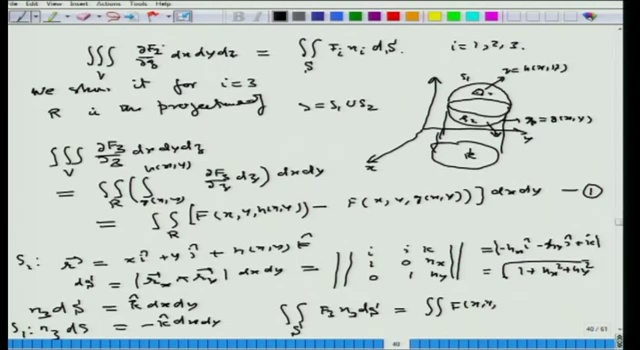 ∭_V ∂F_i/∂z dx dy dz = ∬_S F_i n_i dS. i=1,2,3.
we show it for i=3
R is the projection of S = S₁ ∪ S₂
S₁ z=h(x,y)
S₂ z=g(x,y)
x y R
∭_V ∂F₃/∂z dx dy dz
= ∬_R (∫_{g(x,y)}^{h(x,y)} ∂F₃/∂z dz) dx dy
= ∬_R [F(x,y,h(x,y)) − F(x,y,g(x,y))] dx dy —①
S₁: r⃗ = x î + y ĵ + h(x,y) k̂
dS = |r⃗_x × r⃗_y| dx dy = || i j k ; 1 0 h_x ; 0 1 h_y || = |−h_x î − h_y ĵ + k̂| = √(1+h_x²+h_y²)
n₃ dS = k̂ dx dy
S₁: n₃ dS = −k̂ dx dy
∬_S F₃ n₃ dS = ∬ F(x,y,
40
40 / 61